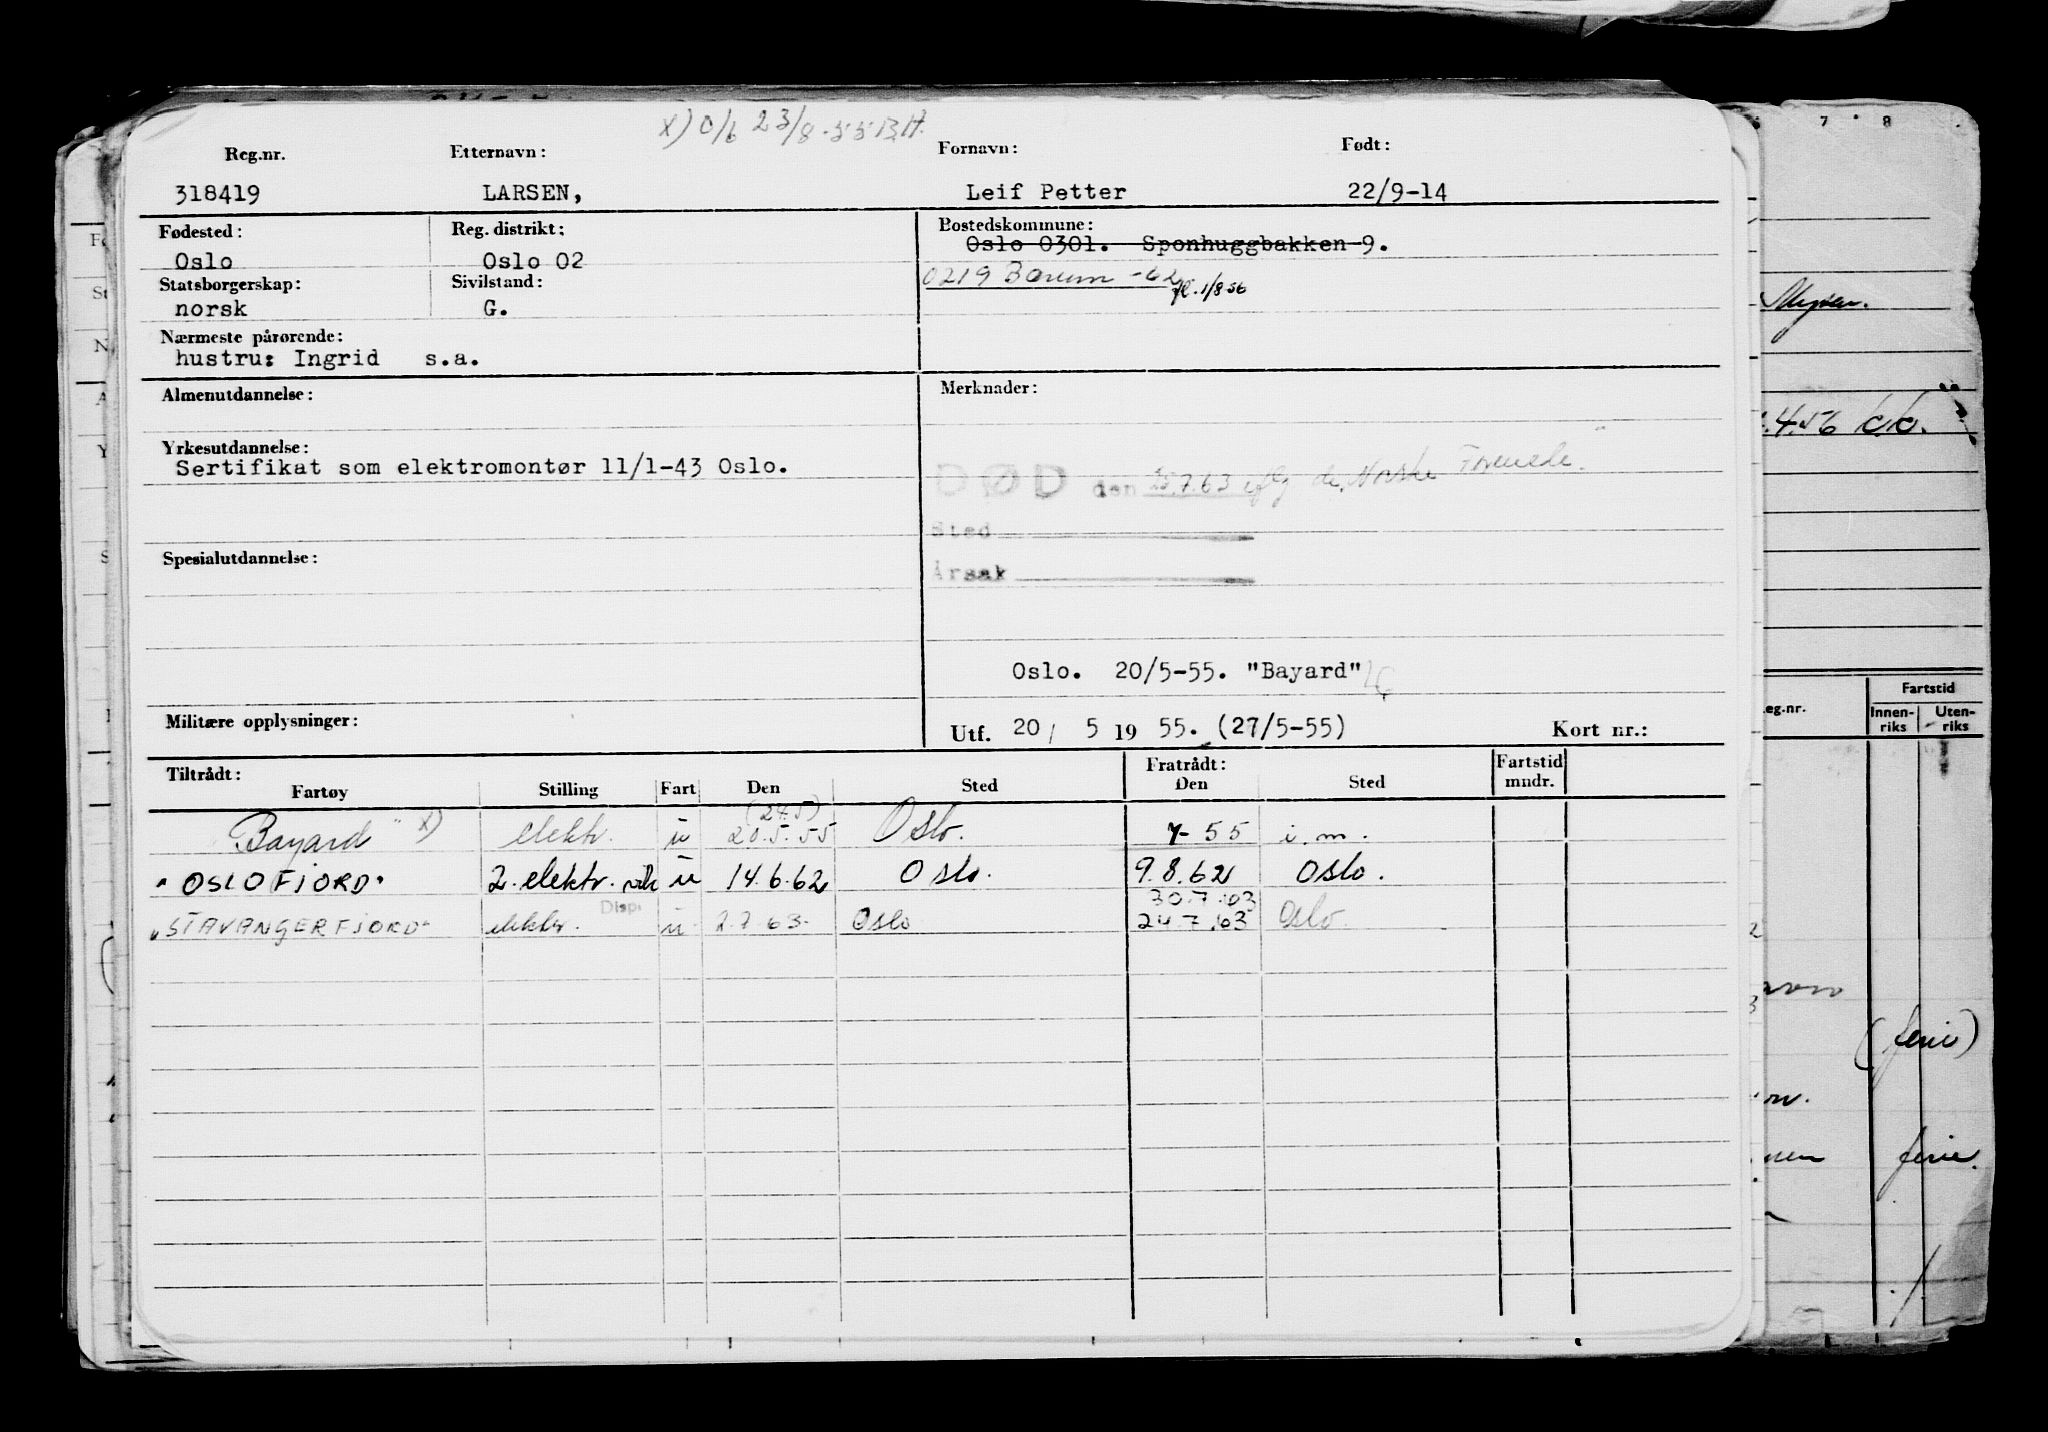 x) 0/6 23/8-55 BH.
Reg.nr. Etternavn: Fornavn: Født:
318419 LARSEN, Leif Petter 22/9-14
Fødested: Reg. distrikt: Bostedskommune:
Oslo Oslo 02 Oslo 0301. Sponhuggbakken 9.
0219 Bærum -62
fl. 1/8 56
Statsborgerskap: Sivilstand:
norsk G.
Nærmeste pårørende:
hustru: Ingrid s.a.
Almenutdannelse: Merknader:
Yrkesutdannelse:
Sertifikat som elektromontør 11/1-43 Oslo.
DØD den 25.7.63 iflg de Norske
Sted
Årsak
Spesialutdannelse:
Oslo. 20/5-55. "Bayard"
Militære opplysninger: Utf. 20/ 5 19 55. (27/5-55) Kort nr.:
Tiltrådt: Fratrådt: Fartstid
Fartøy Stilling Fart Den Sted Den Sted mndr.
(24.5)
Bayard" x) elektr. u 20.5.55 Oslo. 7-55 i.m.
"OSLOFJORD" 2. elektr. u 14.6.62 Oslo. 9.8.62 Oslo.
Disp. 30.7.63
"STAVANGERFJORD" elektr. u. 2.7.63. Oslo 24.7.63 Oslo.
7 8
Mysen.
.4.56
eg.nr. Fartstid
Innen- Uten-
riks riks
(ferie)
ferie.